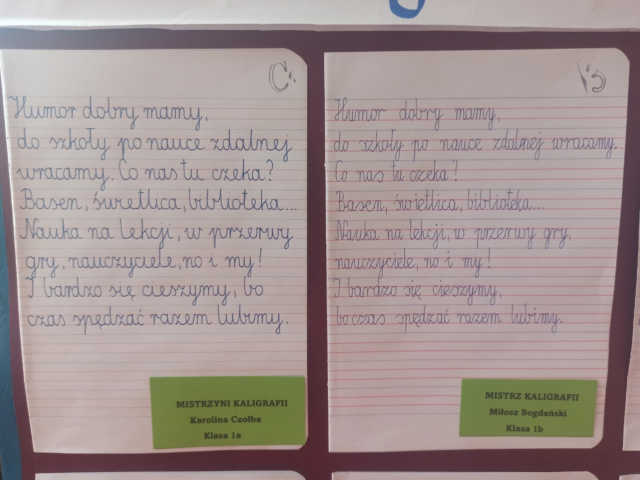 C.
Humor dobry mamy,
do szkoły po nauce zdalnej
wracamy. Co nas tu czeka?
Basen, świetlica, biblioteka...
Nauka na lekcji, w przerwy
gry, nauczyciele, no i my!
I bardzo się cieszymy, bo
czas spędzać razem lubimy.
MISTRZYNI KALIGRAFII
Karolina Czolba
Klasa 1a
Humor dobry mamy,
do szkoły po nauce zdalnej wracamy.
Co nas tu czeka?
Basen, świetlica, biblioteka...
Nauka na lekcji, w przerwy gry,
nauczyciele, no i my!
I bardzo się cieszymy,
bo czas spędzać razem lubimy.
MISTRZ KALIGRAFII
Miłosz Bogdański
Klasa 1b